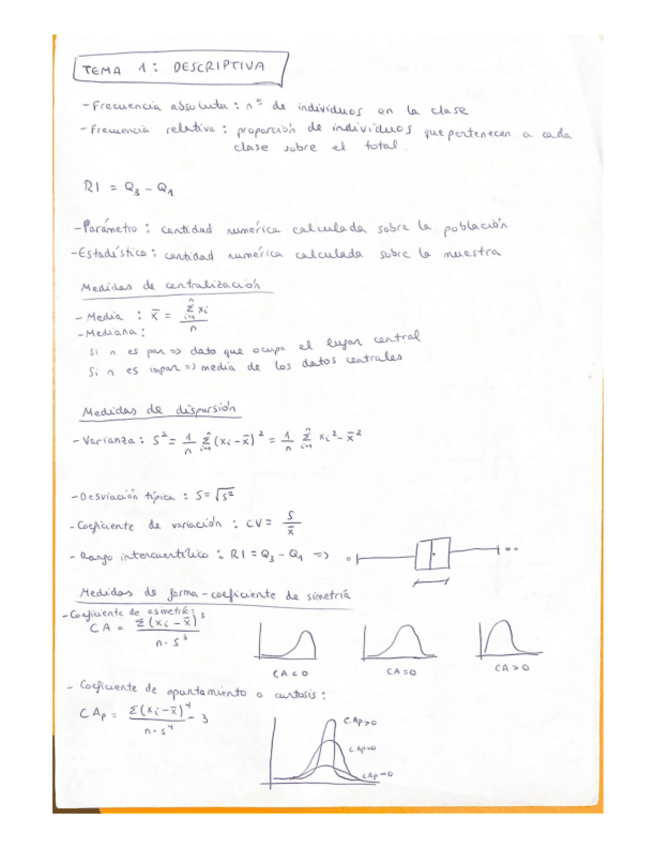 TEMA 1: DESCRIPTIVA
- Frecuencia absoluta: nº de individuos en la clase
- Frecuencia relativa: proporción de individuos que pertenecen a cada
clase sobre el total.
RI = Q₃ - Q₁
- Parámetro: cantidad numérica calculada sobre la población
- Estadístico: cantidad numérica calculada sobre la muestra
Medidas de centralización
- Media: x̄ = Σⁿᵢ₌₁ xᵢ / n
- Mediana:
Si n es par => dato que ocupa el lugar central
Si n es impar => media de los datos centrales
Medidas de dispersión
- Varianza: S² = 1/n Σⁿᵢ₌₁ (xᵢ - x̄)² = 1/n Σⁿᵢ₌₁ xᵢ² - x̄²
- Desviación típica: S = √S²
- Coeficiente de variación: CV = S / x̄
- Rango intercuartílico: RI = Q₃ - Q₁ =>
Medidas de forma - coeficiente de simetría
- Coeficiente de asimetría:
CA = Σ(xᵢ - x̄)³ / n · S³
CA < 0 CA = 0 CA > 0
- Coeficiente de apuntamiento o curtosis:
CAp = Σ(xᵢ - x̄)⁴ / n · s⁴ - 3
CAp > 0
CAp = 0